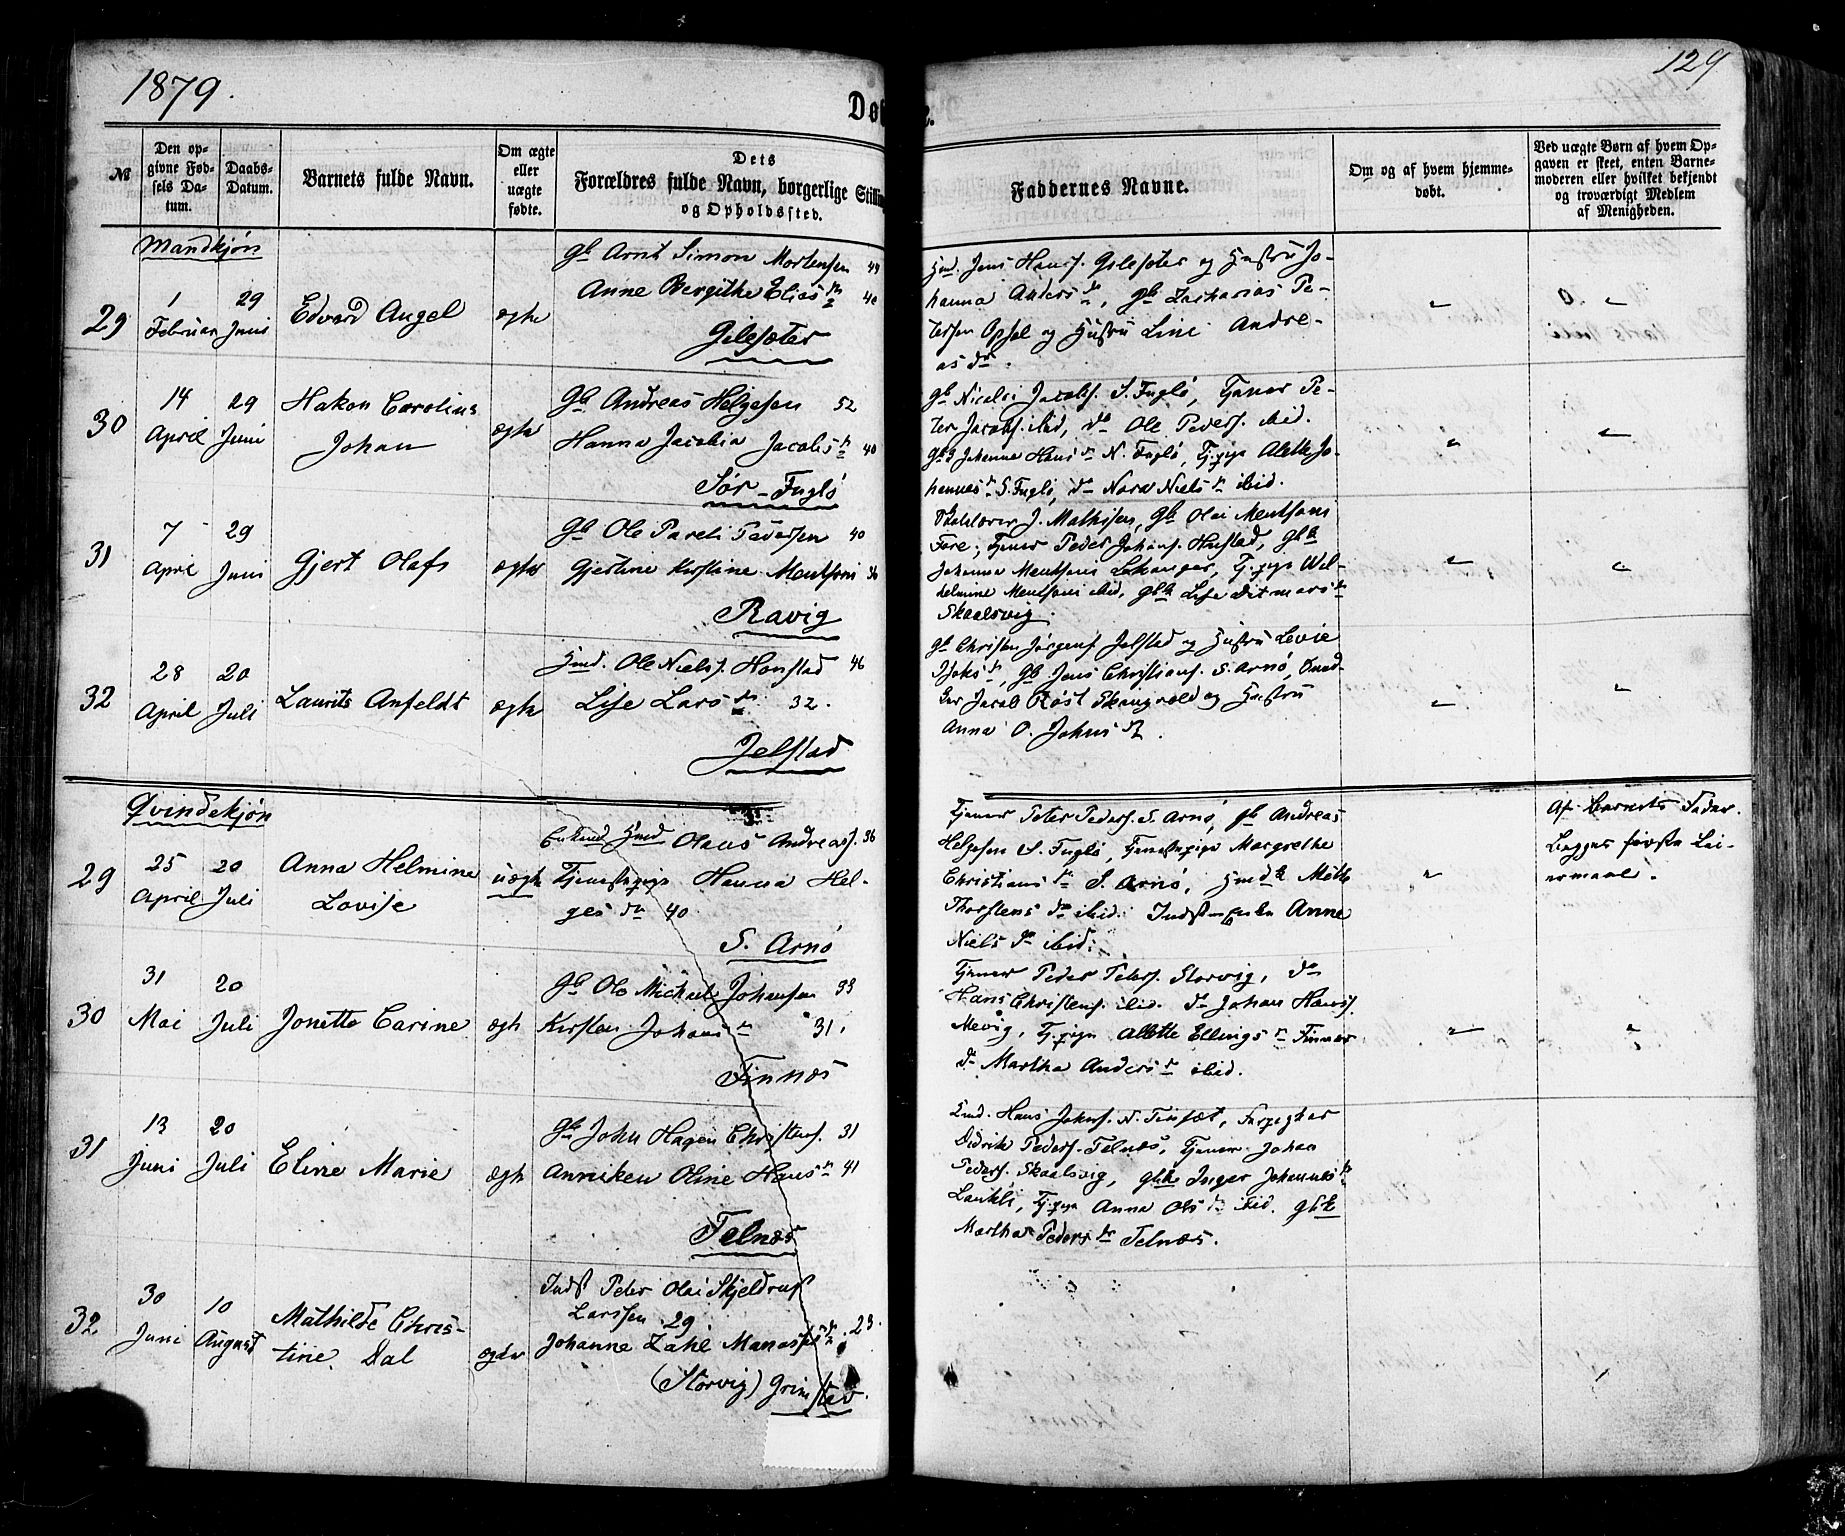 1879.
129
Døbte.
№
Den opgivne Fødsels Datum.
Daabs-Datum.
Barnets fulde Navn.
Om ægte eller uægte fødte.
Dets Forældres fulde Navn, borgerlige Stilling og Opholdssted.
Faddernes Navne.
Om og af hvem hjemmedøbt.
Ved uægte Børn af hvem Opgaven er skeet, enten Barnemoderen eller hvilket bekjendt og troværdigt Medlem af Menigheden.
Mandkjøn
29
1 Februar
29 Juni
Edvard Angel
ægte
Gb Arnt Simon Mortensen 44
Anne Bergithe Elias dn 40
Gilesæter
Gmd. Jens Hanss. Gilesæter og Hustru Jo-
hanna Anders dn, Gb Zacharias Pe-
tersen Opsal og Hustru Line Andre-
as dn.
30
14 April
29 Juni
Hakon Carolius
Johan
ægte
Gb Andreas Helgesen 52
Hanna Jacobia Jacobs dn 40
Sør-Fuglø
Gb Nicolai Jacobs. S. Fuglø, Tjener Pe-
ter Jacobs. ibid, do Ole Peders. ibid.
Johanna Hans dn N. Fuglø, Tj.pige Alette Jo-
hannes dn S. Fuglø, do Nora Niels dn ibid.
31
7 April
29 Juni
Gjert Olaf
ægte
Gb Ole Pareli Pedersen 40
Gjertine Kirstine Mentsoni 36
Ravig
J. Mathisen, Gb Olai Mentsoni
Fore, Tjener Peder Johans. Hustad, Gbk
Johanna Mentsoni Tj.pige Wil-
helmine Mentsoni ibid, Gbk Lise Ditmars dn
Skaalsvig.
32
28 April
20 Juli
Laurits Anfeldt
ægte
Gmd. Ole Nielss. Honstad 46
Lise Lars dn 32.
Jelstad
Gb Christen Jørgens. Jelstad og Hustru Levie
Isaks dn, Gb Jens Christians. S. Arnø,
Jacob Røst og Hustru
Anna O. Johns dn.
Qvindekjøn
29
25 April
20 Juli
Anna Helmine
Lovise
uægte
Enkemd Gmd Olaus Andreass. 36
Tjenestepige Hanna Hel-
ges dn 40
S. Arnø
Tjener Peter Peders. S. Arnø, Gb Andreas
Helgesen S. Fuglø, Tjenestepige Margrethe
Christians dn S. Arnø, Gmdk Mette
Thorstens dn ibid. Anne
Niels dn ibid.
Af Barnets Fader.
Begges første Lei-
ermaal.
30
31 Mai
20 Juli
Jonette Carine
ægte
Gb Ole Michael Johansen 33
Kirsten Johans dn 31.
Finnæs
Tjener Peder Peters. Storvig, do
Hans Christens. ibid. do Johan Hanss.
Mevig, Tj.pige Alette Ellings dn Finnæs
do Martha Anders dn ibid.
31
13 Juni
20 Juli
Eline Marie
ægte
Gb John Hagen Christens. 31
Anniken Oline Hans dn 41
Telnæs
Gmd. Hans Johns. N. Finset, Forpagter
Didrik Peders. Telnæs, Tjener Johan
Peders. Skaalsvig, Gbk Inger Johannes dn
Tj.pige Anna Ols dn ibid. Gbk
Martha Peders dn Telnæs.
32
30 Juni
10 August
Mathilde Chris-
tine Dal
ægte
Indst Peter Olai Skjeldrup
Larssen 29.
Johanne Zahl Manasses dn 23.
(Storvig) Grimstad.